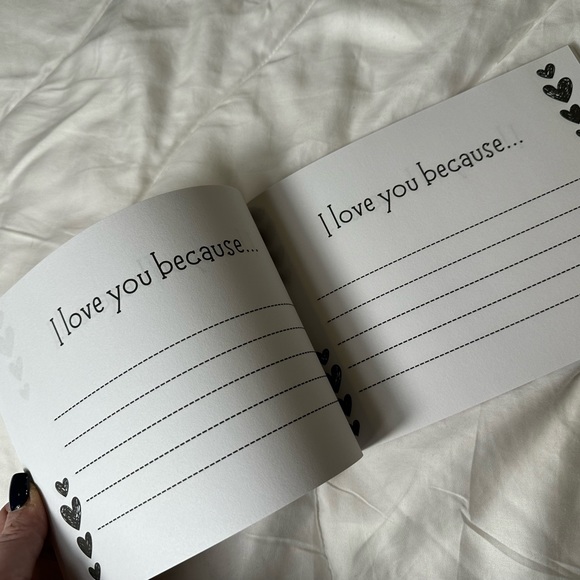 I love you because...
I love you because...